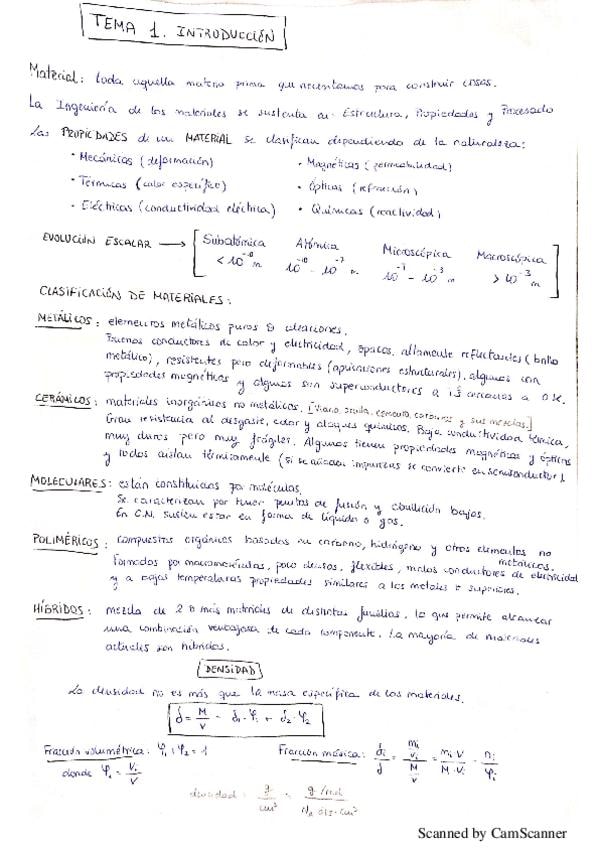 TEMA 1. INTRODUCCIÓN
Material: toda aquella materia prima que necesitamos para construir cosas.
La Ingeniería de los materiales se sustenta en: Estructura, Propiedades y Procesado
Las PROPIEDADES de un MATERIAL se clasifican dependiendo de la naturaleza:
· Mecánicas (deformación)
· Magnéticas (permeabilidad)
· Térmicas (calor específico)
· Ópticas (refracción)
· Eléctricas (conductividad eléctrica)
· Químicas (reactividad)
EVOLUCIÓN ESCALAR → [Subatómica Atómica Microscópica Macroscópica
< 10^-10 m 10^-10 - 10^-7 m 10^-7 - 10^-3 m > 10^-3 m]
CLASIFICACIÓN DE MATERIALES:
METÁLICOS: elementos metálicos puros o aleaciones.
Buenos conductores de calor y electricidad, opacos, altamente reflectantes (brillo
metálico), resistentes pero deformables (aplicaciones estructurales), algunos con
propiedades magnéticas y algunos son superconductores a Tª cercanas a 0 K.
CERÁMICOS: materiales inorgánicos no metálicos. [vidrio, arcilla, cemento, carburos y sus mezclas.]
Gran resistencia al desgaste, calor y ataques químicos. Baja conductividad térmica,
muy duros pero muy frágiles. Algunos tienen propiedades magnéticas y ópticas
y todos aíslan térmicamente (si se añaden impurezas se convierte en semiconductor).
MOLECULARES: están constituidos por moléculas.
Se caracterizan por tener puntos de fusión y ebullición bajos.
En C.N. suelen estar en forma de líquido o gas.
POLIMÉRICOS: compuestos orgánicos basados en carbono, hidrógeno y otros elementos no
metálicos.
Formados por macromoléculas, poco densos, flexibles, malos conductores de electricidad
y a bajas temperaturas propiedades similares a los metales o superiores.
HÍBRIDOS: mezcla de 2 o más materiales de distintas familias, lo que permite alcanzar
una combinación ventajosa de cada componente. La mayoría de materiales
actuales son híbridos.
DENSIDAD
La densidad no es más que la masa específica de los materiales.
δ = M/V = δ1·φ1 + δ2·φ2
Fracción volumétrica: φ1 + φ2 = 1
donde φi = Vi/V
Fracción másica: δi/δ = (mi/Vi)/(M/V) = mi·V/M·Vi = ni/φi
densidad = g/cm³
Scanned by CamScanner